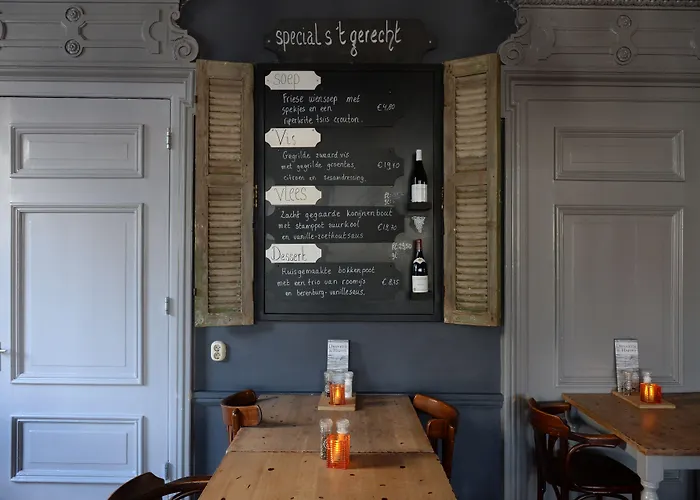 special s 't gerecht
Soep
Friese uiensoep met
spekjes en een
riperkrite tsiis crouton.. €4,80
Vis
Gegrilde zwaardvis
met gegrilde groentes, €19,80
citroen en sesamdressing.
Vlees
Zacht gegaarde konijnenbout
met stamppot zuurkool €18,70
en vanille-zoethoutsaus
Dessert
Huisgemaakte bokkenpoot
met een trio van roomijs €8,75
en berenburg-vanillesaus.